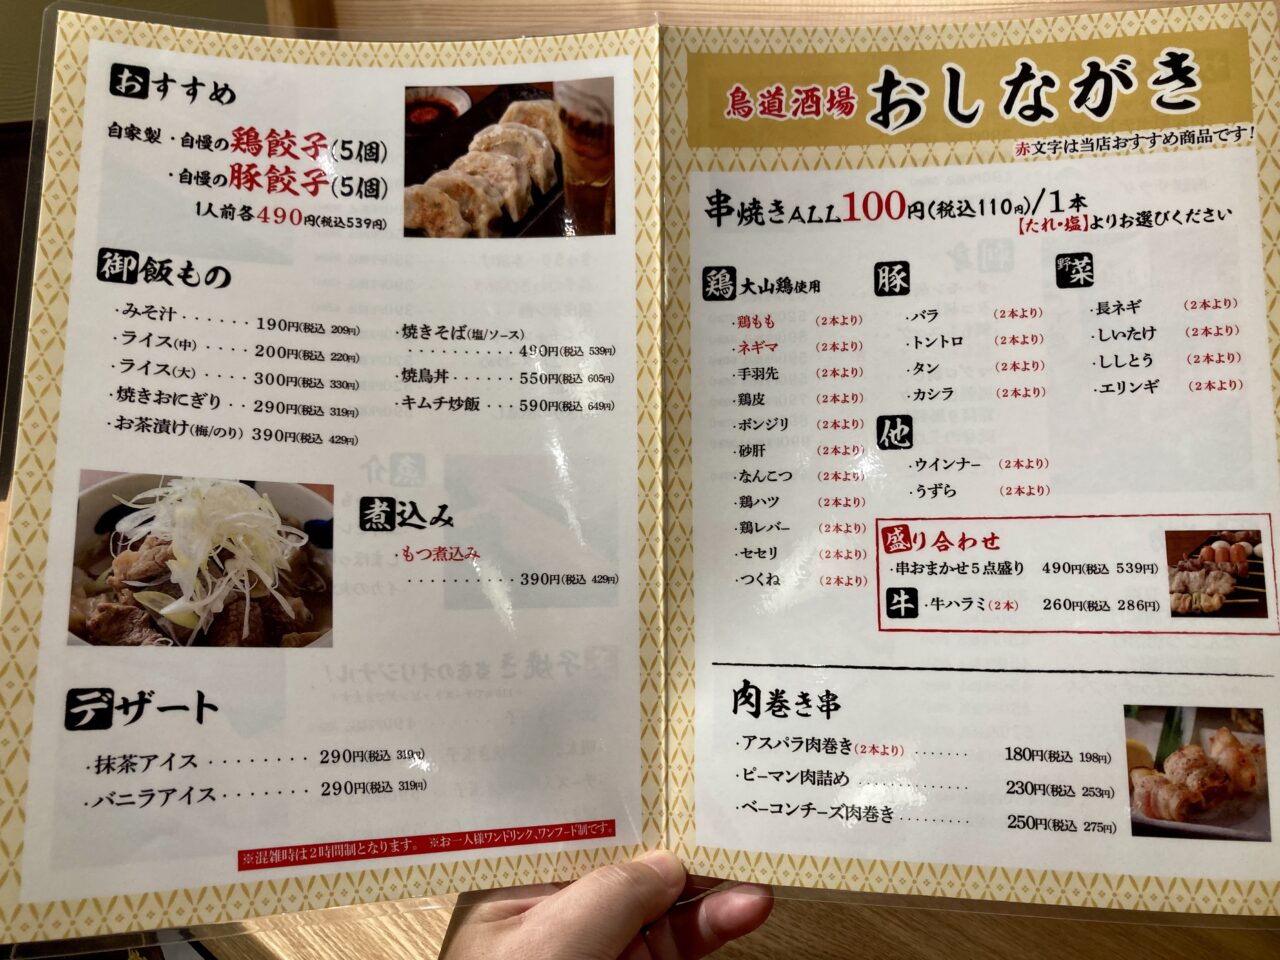 おすすめ
自家製・自慢の鶏餃子(5個)
・自慢の豚餃子(5個)
1人前各490円(税込539円)
御飯もの
・みそ汁......190円(税込 209円)
・ライス(中)....200円(税込 220円)
・ライス(大)....300円(税込 330円)
・焼きおにぎり..290円(税込 319円)
・お茶漬け(梅/のり) 390円(税込 429円)
・焼きそば(塩/ソース)
.........490円(税込 539円)
・焼鳥丼......550円(税込 605円)
・キムチ炒飯..590円(税込 649円)
煮込み
・もつ煮込み
.........390円(税込 429円)
デザート
・抹茶アイス........290円(税込 319円)
・バニラアイス.......290円(税込 319円)
※混雑時は2時間制となります。 ※お一人様ワンドリンク、ワンフード制です。
鳥道酒場 おしながき
赤文字は当店おすすめ商品です!
串焼きALL100円(税込110円)/1本
【たれ・塩】よりお選びください
鶏 大山鶏使用
・鶏もも (2本より)
・ネギマ (2本より)
・手羽先 (2本より)
・鶏皮 (2本より)
・ボンジリ (2本より)
・砂肝 (2本より)
・なんこつ (2本より)
・鶏ハツ (2本より)
・鶏レバー (2本より)
・セセリ (2本より)
・つくね (2本より)
豚
・バラ (2本より)
・トントロ (2本より)
・タン (2本より)
・カシラ (2本より)
他
・ウインナー (2本より)
・うずら (2本より)
野菜
・長ネギ (2本より)
・しいたけ (2本より)
・ししとう (2本より)
・エリンギ (2本より)
盛り合わせ
・串おまかせ5点盛り 490円(税込 539円)
牛 ・牛ハラミ(2本) 260円(税込 286円)
肉巻き串
・アスパラ肉巻き(2本より).......180円(税込 198円)
・ピーマン肉詰め..............230円(税込 253円)
・ベーコンチーズ肉巻き.........250円(税込 275円)